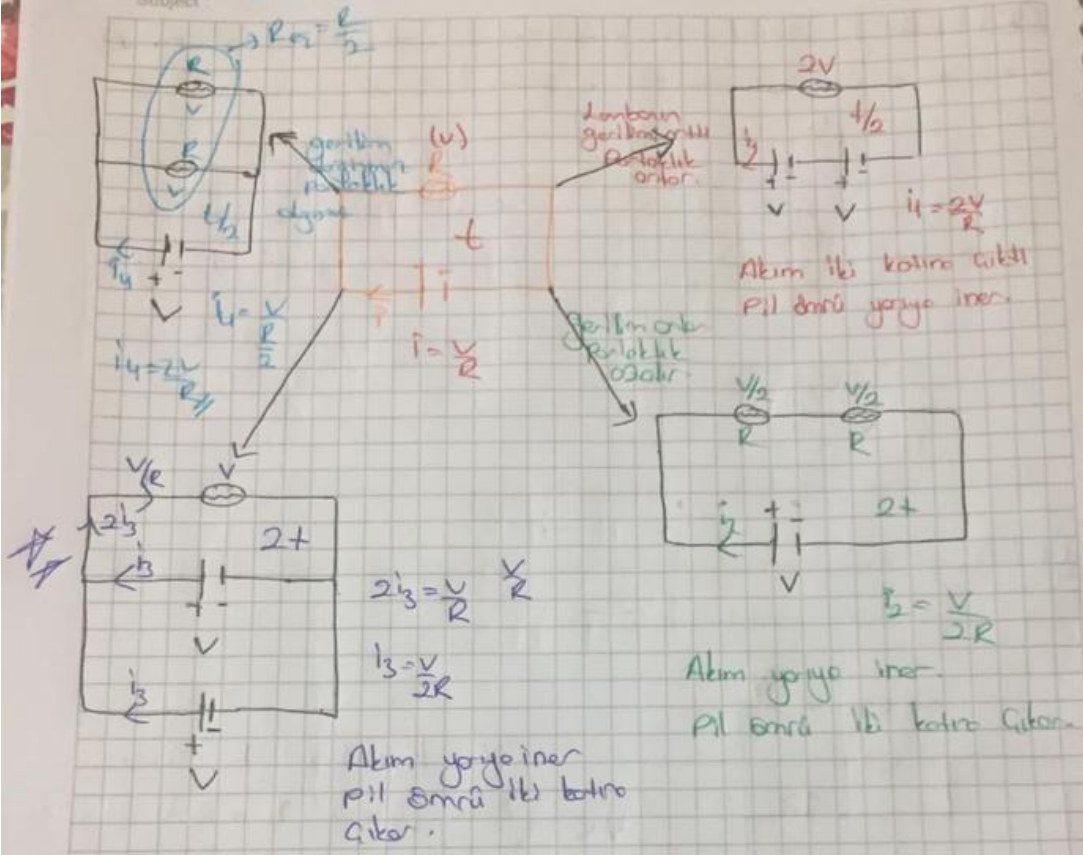 Subject:
→ Reş = R/2
R
V
R
V
t/2
i4
+ -
V
i4 = V / R/2
i4 = 2V/R //
gerilim
değişmez
parlaklık
(V)
R
t
i
i = V/R
Lambanın
gerilimi arttı
Parlaklık
artar.
2V
t/2
i1
+ - + -
V V
i1 = 2V/R
Akım iki katına çıktı
Pil ömrü yarıya iner.
Parlaklık
azalır.
V/2 V/2
R R
i2 + - 2t
V
i2 = V/2R
Akım yarıya iner.
Pil ömrü iki katına Çıkar.
V/R V
2i3 2t
i3
+ -
V
i3
+ -
V
2i3 = V/R V/R
i3 = V/2R
Akım yarıya iner
Pil ömrü iki katına
Çıkar.